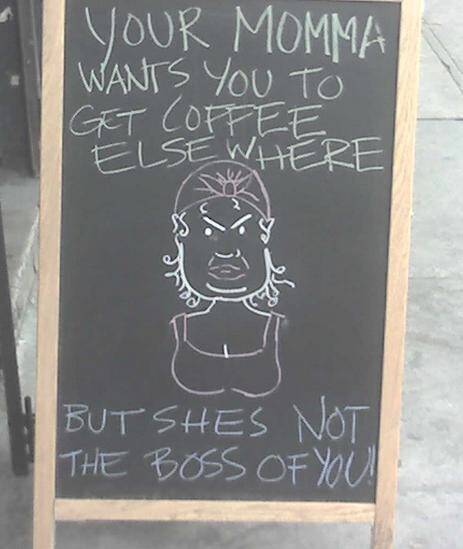 YOUR MOMMA
WANTS YOU TO
GET COFFEE
ELSEWHERE
BUT SHES NOT
THE BOSS OF YOU!